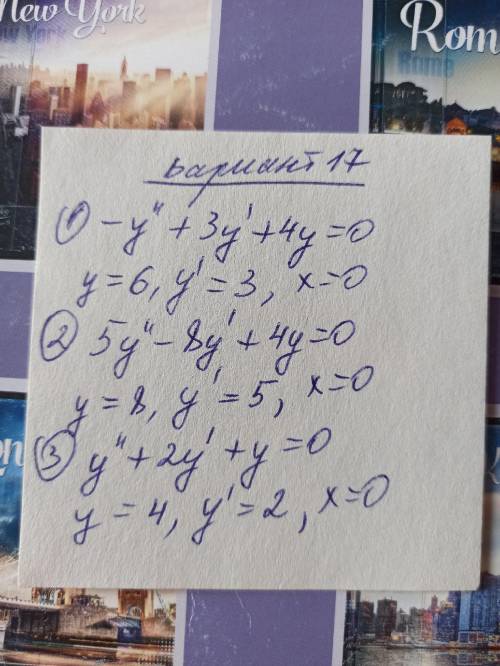 New York
New York
Rom
Rome
Вариант 17
① -y'' + 3y' + 4y = 0
y = 6, y' = 3, x = 0
② 5y'' - 8y' + 4y = 0
y = 8, y' = 5, x = 0
③ y'' + 2y' + y = 0
y = 4, y' = 2, x = 0
on